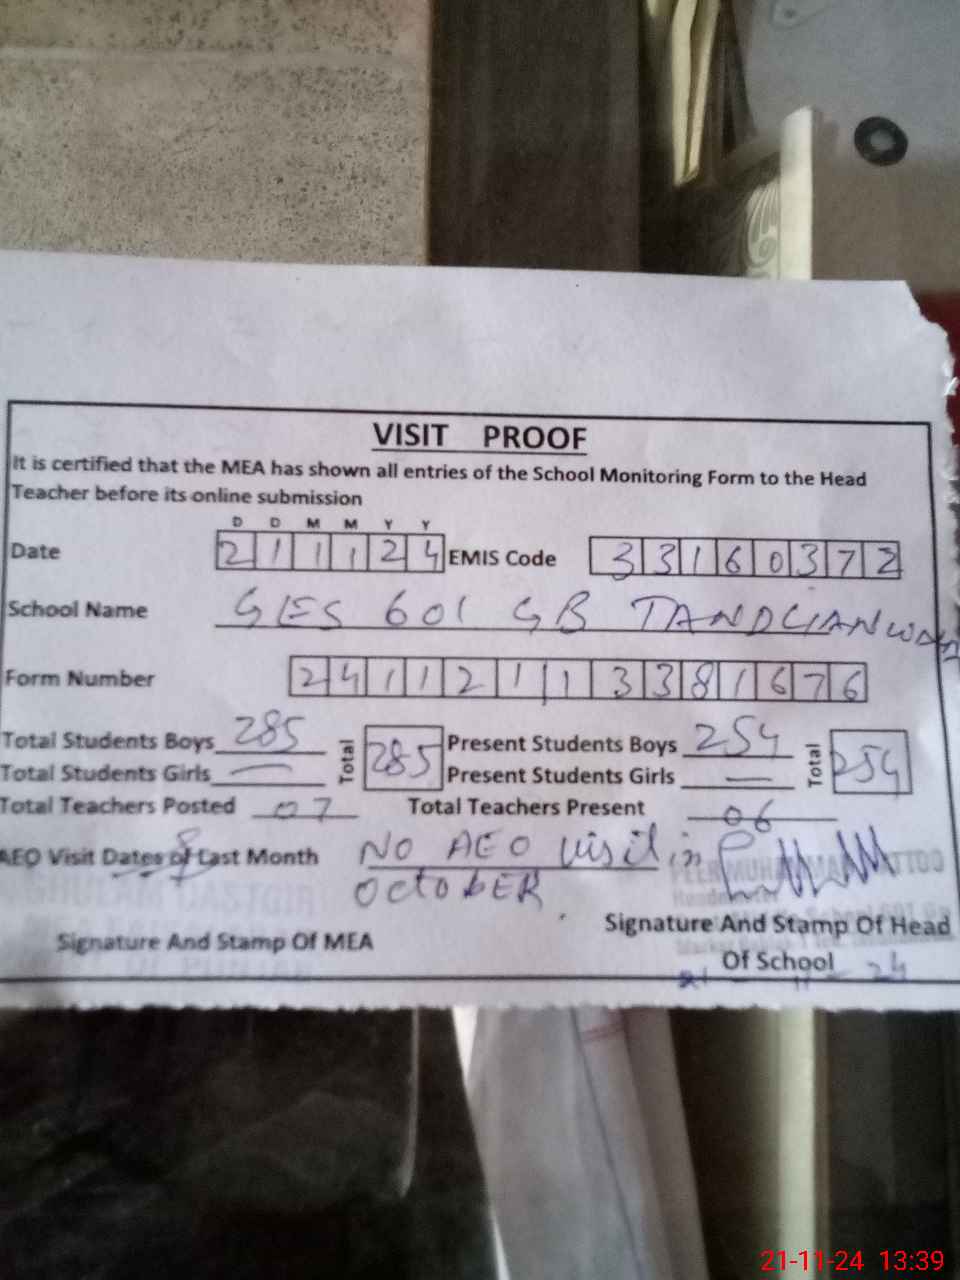 VISIT PROOF
It is certified that the MEA has shown all entries of the School Monitoring Form to the Head
Teacher before its online submission
D D M M Y Y
Date 21 11 24 EMIS Code 33160372
School Name GES 601 GB TANDLIANWALA
Form Number 241121113381676
Total Students Boys 285 Total 285 Present Students Boys 254 Total 254
Total Students Girls — Present Students Girls —
Total Teachers Posted 07 Total Teachers Present 06
AEO Visit Dates of Last Month NO AEO visit in
OctobER
GHULAM DASTGIR
PEER MUHAMMAD
Headmaster
Signature And Stamp Of MEA
Signature And Stamp Of Head
Of School
21-11-24 13:39